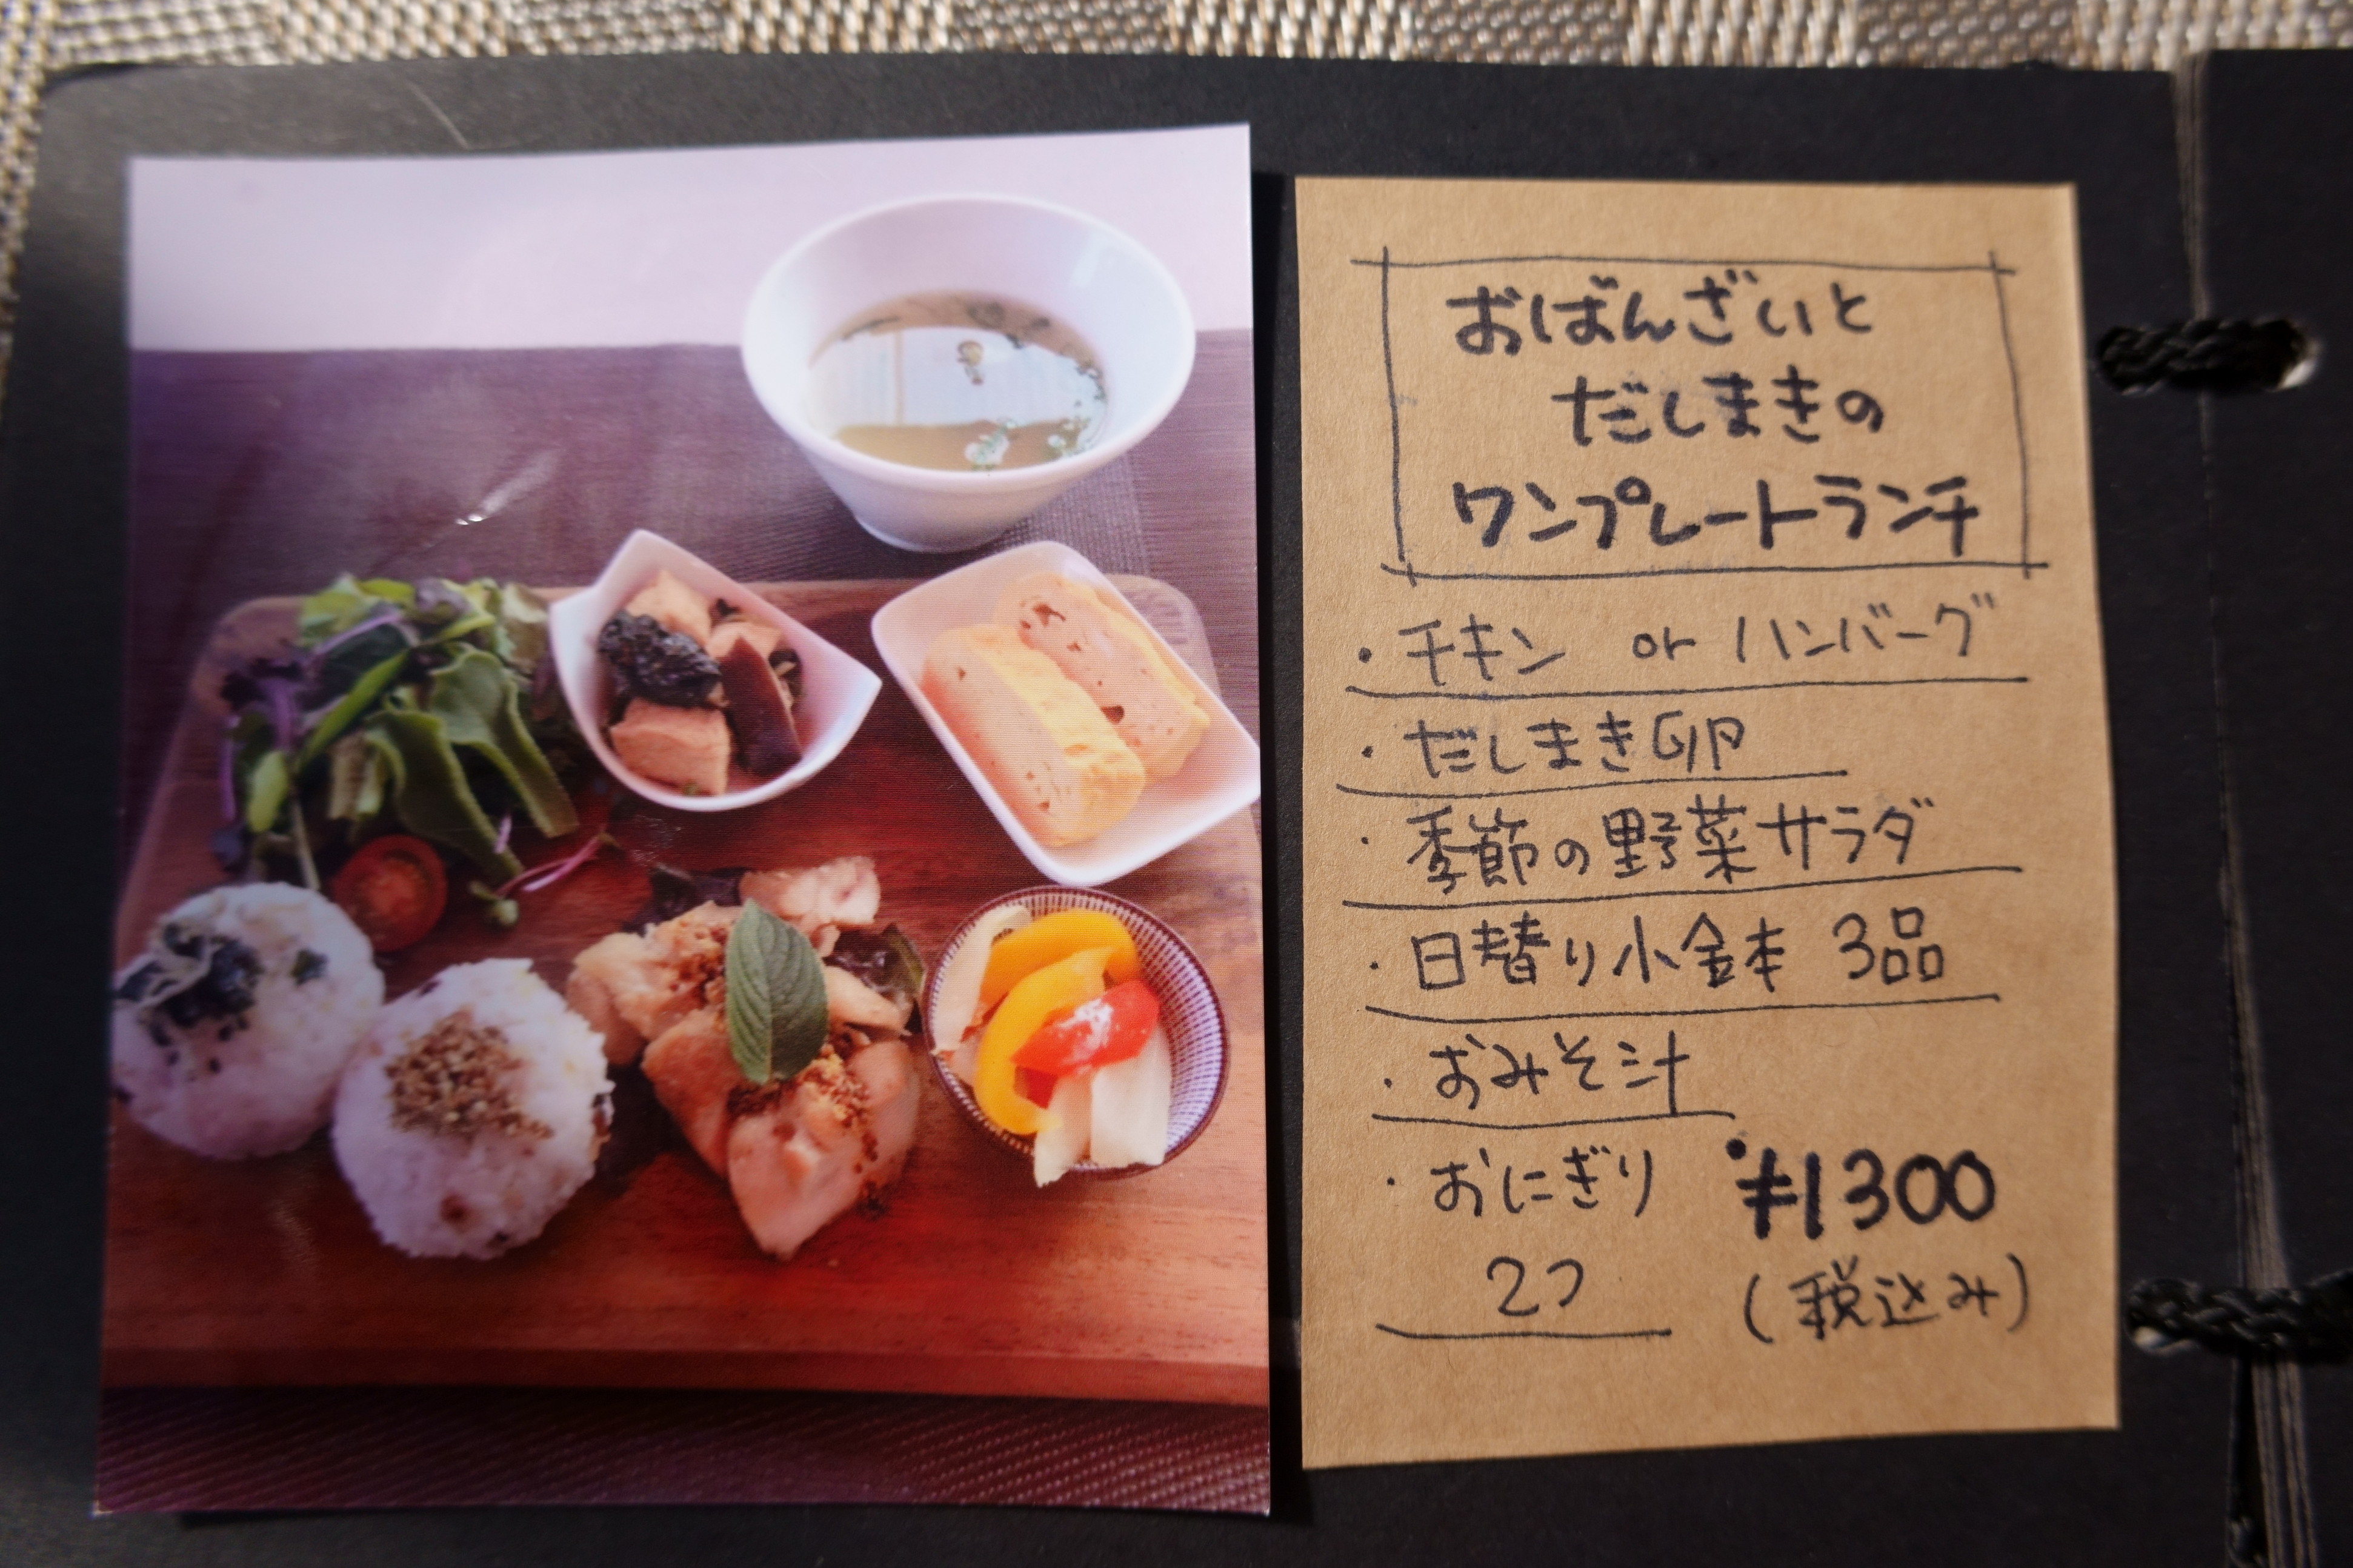 おばんざいと
だしまきの
ワンプレートランチ
・チキン or ハンバーグ
・だしまき卵
・季節の野菜サラダ
・日替り小鉢 3品
・おみそ汁
・おにぎり ¥1300
2つ (税込み)